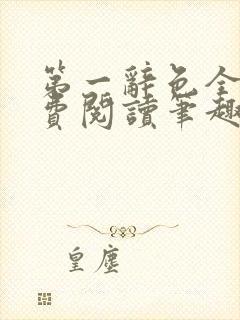 第一辭色全
費閱讀筆趣
皇塵